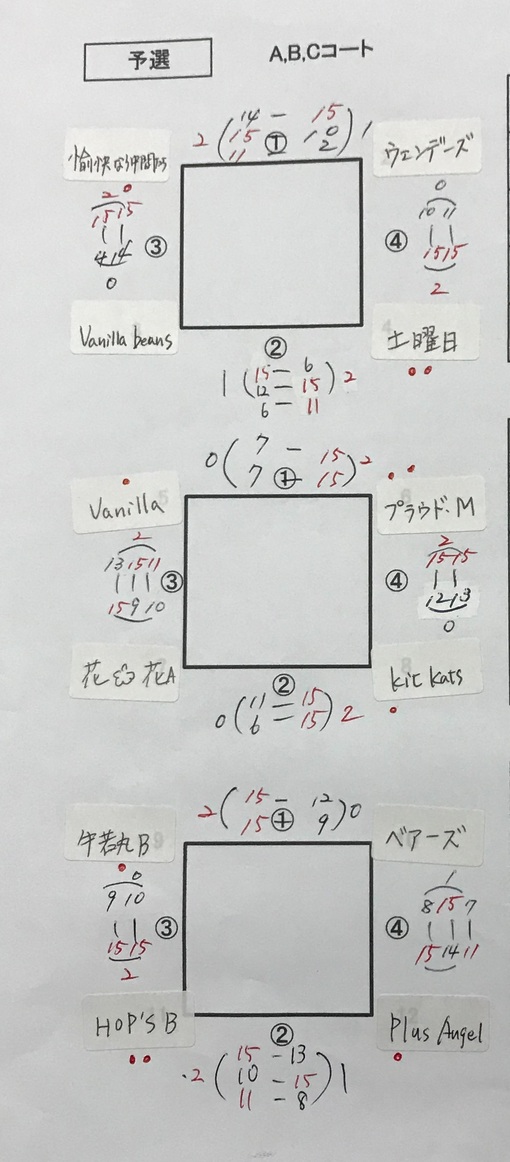 予選
A,B,Cコート
14 - 15
2 ( 15 ① 10 ) 1
11 2
愉快な仲間たち
ウェンデーズ
2
0
15 15
10 11
| |
| |
③
④
4 14
15 15
0
2
Vanilla beans
土曜日
②
1 ( 15 - 6 ) 2
12 - 15
6 - 11
7 - 15
0 ( 7 ① 15 ) 2
Vanilla
プラウド・M
2
2
13 15 11
15 15
| | |
| |
③
④
15 9 10
12 13
0
花
花A
kit kats
②
0 ( 11 - 15 ) 2
6 - 15
15 - 12
2 ( 15 ① 9 ) 0
牛若丸B
ベアーズ
0
1
9 10
8 15 7
| |
| | |
③
④
15 15
15 14 11
2
HOP'S B
Plus Angel
②
15 - 13
2 ( 10 - 15 ) 1
11 - 8